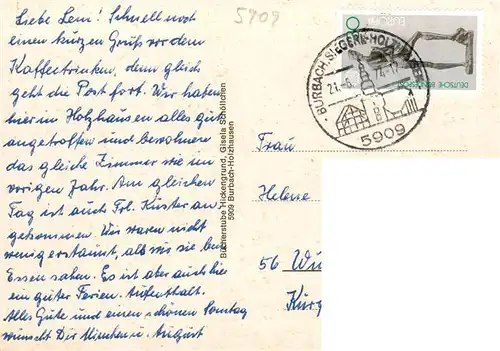 5909
Liebe Leni! Schnell noch
einen kurzen Gruß vor dem
Kaffeetrinken, denn gleich
geht die Post fort. Wir haben
hier in Holzhausen alles gut
angetroffen und bewohnen
das gleiche Zimmer wie im
vorigen Jahr. Am gleichen
Tag ist auch Frl. Küster an-
gekommen. Wir waren nicht
wenig erstaunt, als wir sie beim
Essen sahen. Es ist aber auch hier
ein guter Ferien-Aufenthalt.
Alles Gute und einen schönen Sonntag
wünscht Dir Mienchen u. August
Bücherstube Hickengrund, Gisela Schöllchen
5909 Burbach-Holzhausen
EUROPA
DEUTSCHE BUNDESPOST
BURBACH, SIEGERL.-HOLZHAUSEN
21.-6. 74-17
5909
Frau
Helene
56 Wu
Kurz